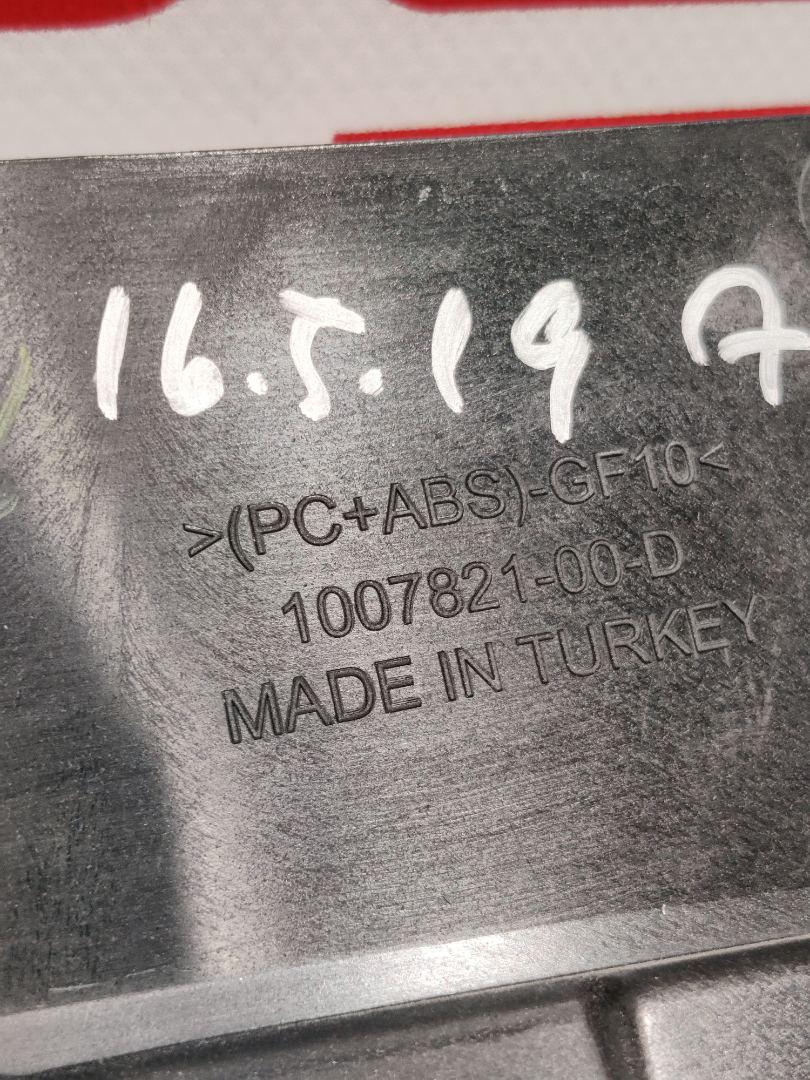 16.5.19 A
>(PC+ABS)-GF10<
1007821-00-D
MADE IN TURKEY